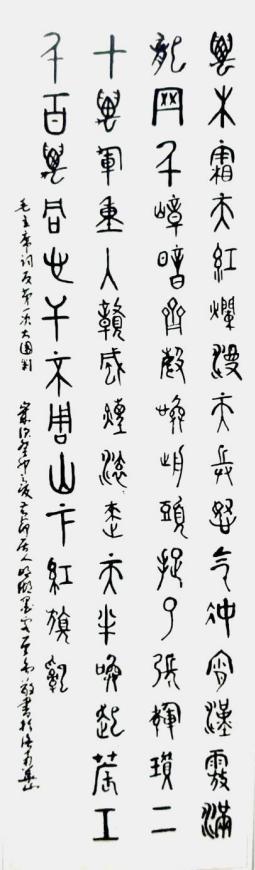 萬木霜天紅爛漫天兵怒气沖霄漢霧滿
龍岡千嶂暗齊聲喚前頭捉了張輝瓚二
十萬軍重入贛風煙滾〻來天半喚起農工
千百萬同心干不周山下紅旗亂
毛主席詞反第一次大圍剿